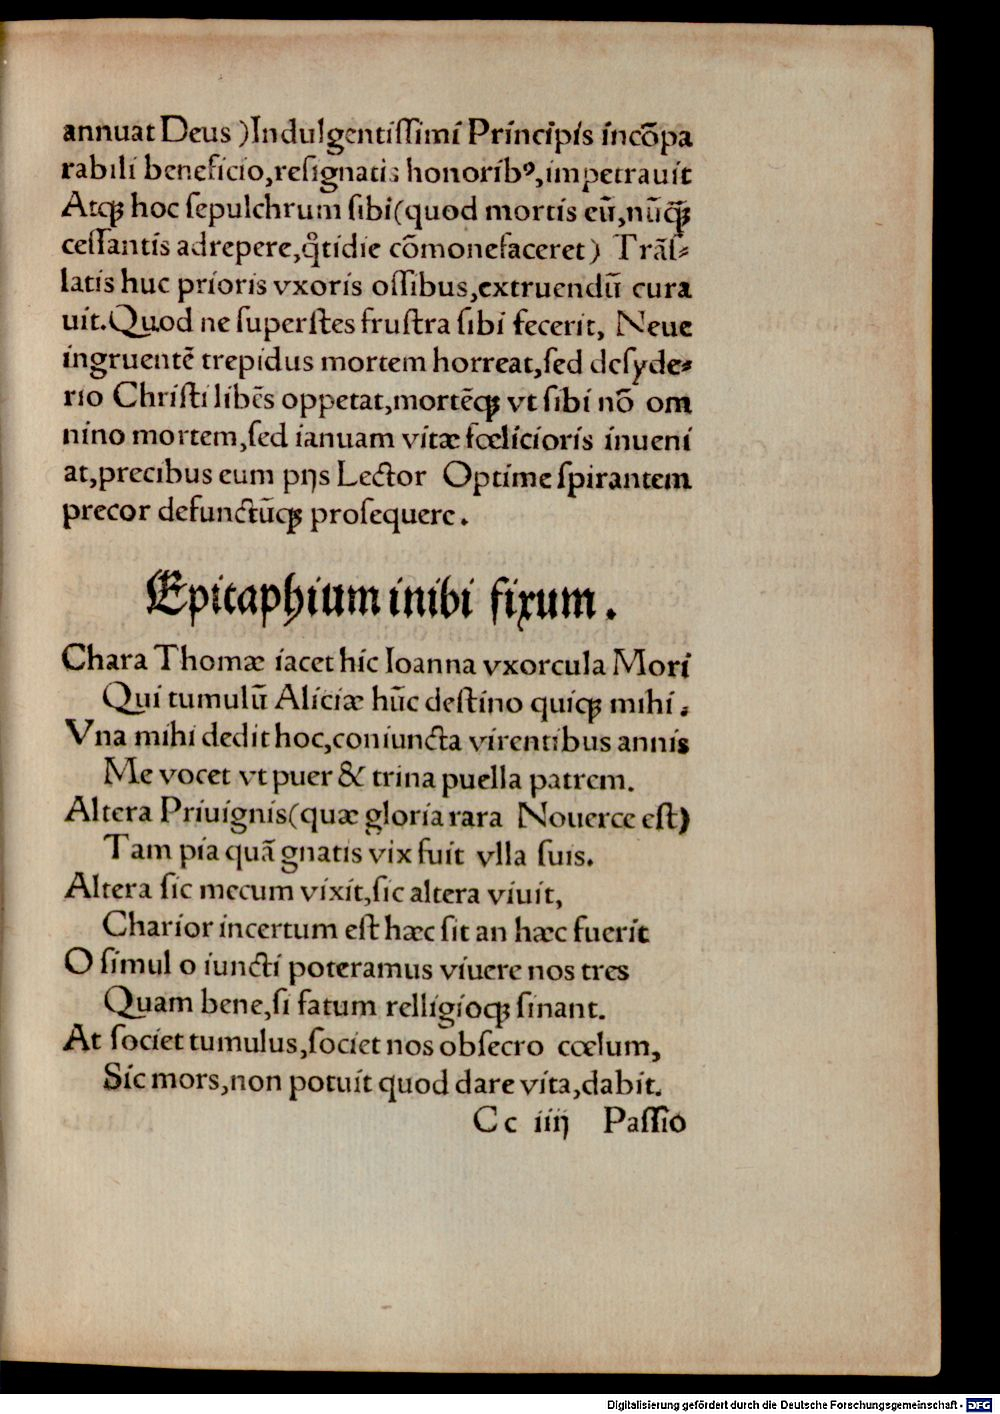 annuat Deus )Indulgentiſſimi Principis incõpa
rabili beneficio,reſignatis honoribꝰ,impetrauit
Atqꝫ hoc ſepulchrum ſibi(quod mortis eũ,nũqꝫ̃
ceſſantis adrepere,qͥtidie cõmonefaceret) Trãſ⸗
latis huc prioris vxoris oſſibus,extruendũ cura
uit.Quod ne ſuperſtes fruſtra ſibi fecerit, Neue
ingruentẽ trepidus mortem horreat,ſed deſyde⸗
rio Chriſti libẽs oppetat,mortẽqꝫ vt ſibi nõ om
nino mortem,ſed ianuam vitæ fœlicioris inueni
at,precibus eum pijs Lector Optime ſpirantem
precor defunctũqꝫ proſequere.
Epitaphium inibi fixum.
Chara Thomæ iacet hic Ioanna vxorcula Mori
Qui tumulũ Aliciæ hũc deſtino quiqꝫ mihi.
Vna mihi dedit hoc,coniuncta virentibus annis
Me vocet vt puer & trina puella patrem.
Altera Priuignis(quæ gloria rara Nouerce eſt)
Tam pia quã gnatis vix fuit vlla ſuis.
Altera ſic mecum vixit,ſic altera viuit,
Charior incertum eſt hæc ſit an hæc fuerit
O ſimul o iuncti poteramus viuere nos tres
Quam bene,ſi fatum relligioqꝫ ſinant.
At ſociet tumulus,ſociet nos obſecro cœlum,
Sic mors,non potuit quod dare vita,dabit.
Cc iiij Paſſio
Digitalisierung gefördert durch die Deutsche Forschungsgemeinschaft - DFG